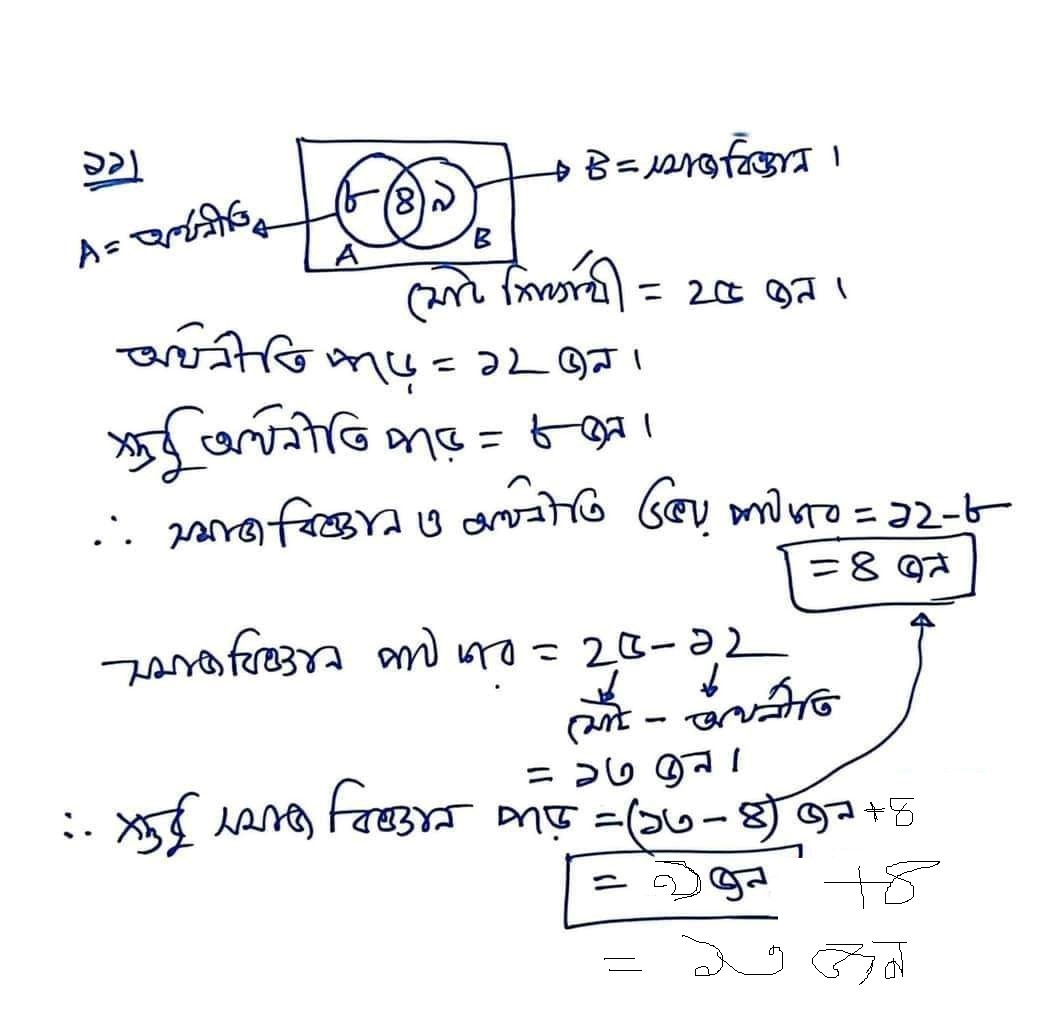 ১১।
B = সমাজবিজ্ঞান ।
৮ ৪ ৯
A = অর্থনীতি
A B
মোট শিক্ষার্থী = ২৫ জন ।
অর্থনীতি পড়ে = ১২ জন ।
শুধু অর্থনীতি পড়ে = ৮ জন ।
∴ সমাজবিজ্ঞান ও অর্থনীতি উভয় পাঠ করে = ১২-৮
= ৪ জন
সমাজবিজ্ঞান পাঠ করে = ২৫-১২
মোট - অর্থনীতি
= ১৩ জন ।
∴ শুধু সমাজ বিজ্ঞান পড়ে = (১৩-৪) জন +৪
= ৯ জন +৪
= ১৩ জন